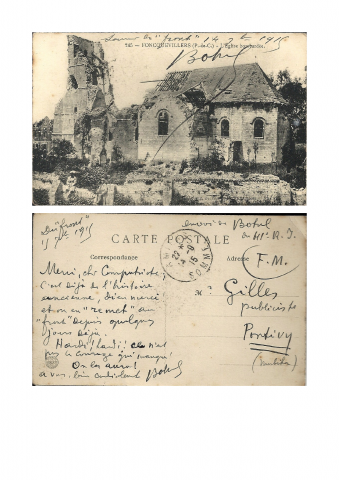 du "front" 14 7bre 1915
245. - FONCQUEVILLERS (P.-de-C.) - L'Eglise bombardée.
Botul
Du "front"
15 7bre 1915
envoi de Botul
du 41e R. I.
CARTE POSTALE
Correspondance
Adresse
F. M.
Merci, cher Compatriote,
C'est déjà de l'histoire
ancienne, dieu merci
et on en "remet" au
"front" depuis quelques
jours déjà.
Hardi! Lardi! ce n'est
pas le courage qui manque!
On les aura!
à vous, bien cordialement Botul
Mr
Gilles
publiciste
Pontivy
(Morbihan)